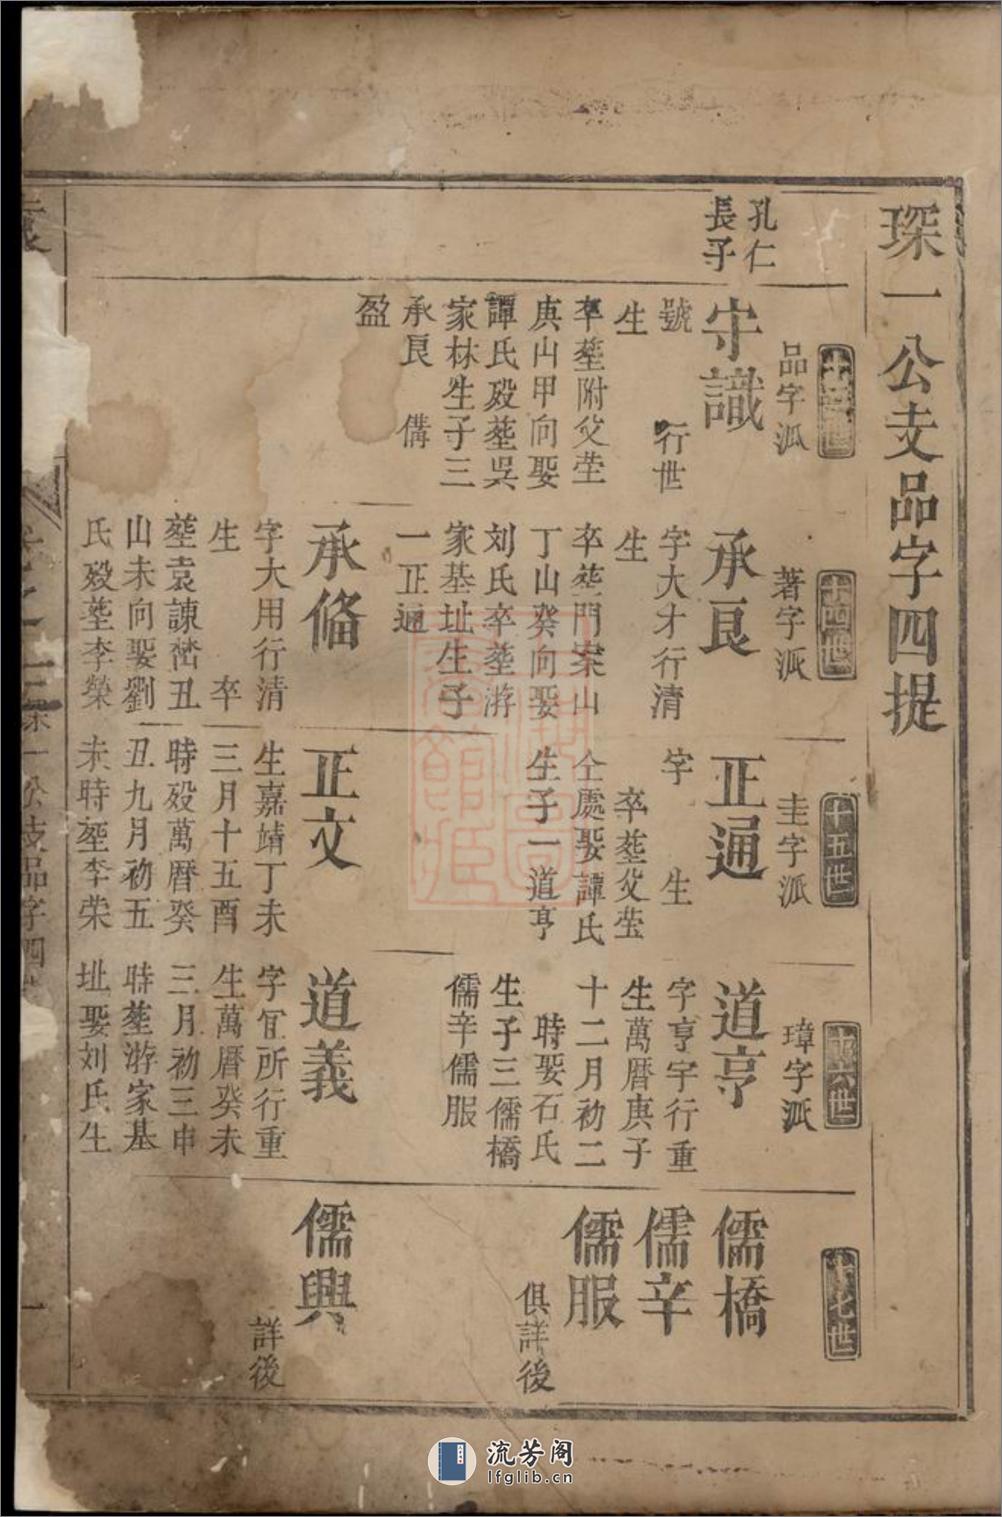 琛一公支品字四提
十三世
品字派
十四世
著字派
十五世
圭字派
十六世
璋字派
十七世
孔仁
長子
守識
號　行世
生
卒塟附父塋
庚山甲向娶
譚氏殁塟吳
家林生子三
承良　備
盈
承良
字大才行清
生
卒塟門案山
丁山癸向娶
刘氏卒塟游
家基址生子
一正通
正通
字　生
卒塟父茔
仝處娶譚氏
生子一道亨
道亨
字亨宇行重
生萬曆庚子
十二月初二
時娶石氏
生子三儒橋
儒辛儒服
儒橋
儒辛
儒服
俱詳後
承俻
字大用行清
生　卒
塟袁諌嵤丑
山未向娶劉
氏殁塟李榮
正文
生嘉靖丁未
三月十五酉
時殁萬曆癸
丑九月初五
未時塟李荣
道義
字宜所行重
生萬曆癸未
三月初三申
時塟游家基
址娶刘氏生
儒興
詳後
一公支品字四
一
流芳阁
lfglib.cn